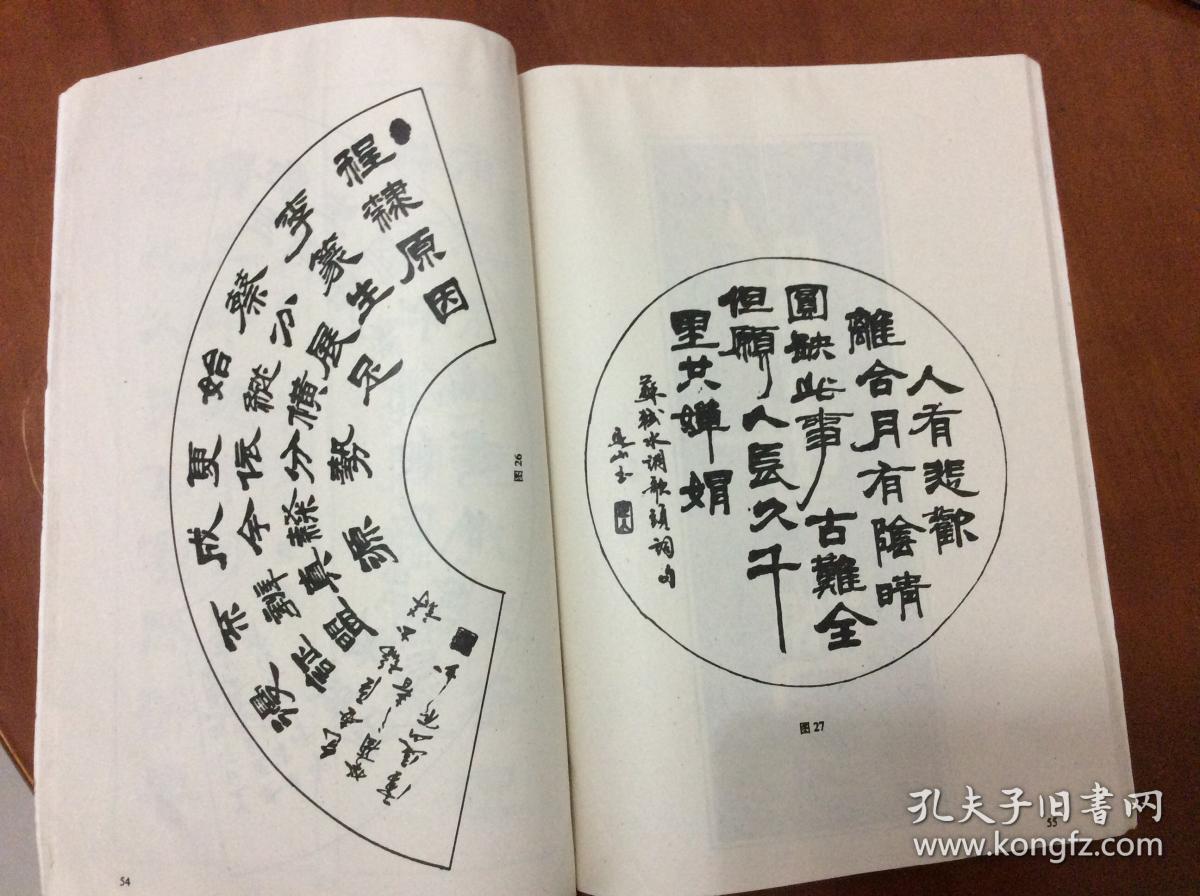 程隸原因
李篆生
蔡分展足
始縱橫
更依分勢
成今隸
不辨真源
漫証盟
图 26
54
人有悲歡
離合月有陰晴
圓缺此事古難全
但願人長久千
里共嬋娟
蘇軾水調歌頭詞句
图 27
55
孔夫子旧书网
www.kongfz.com